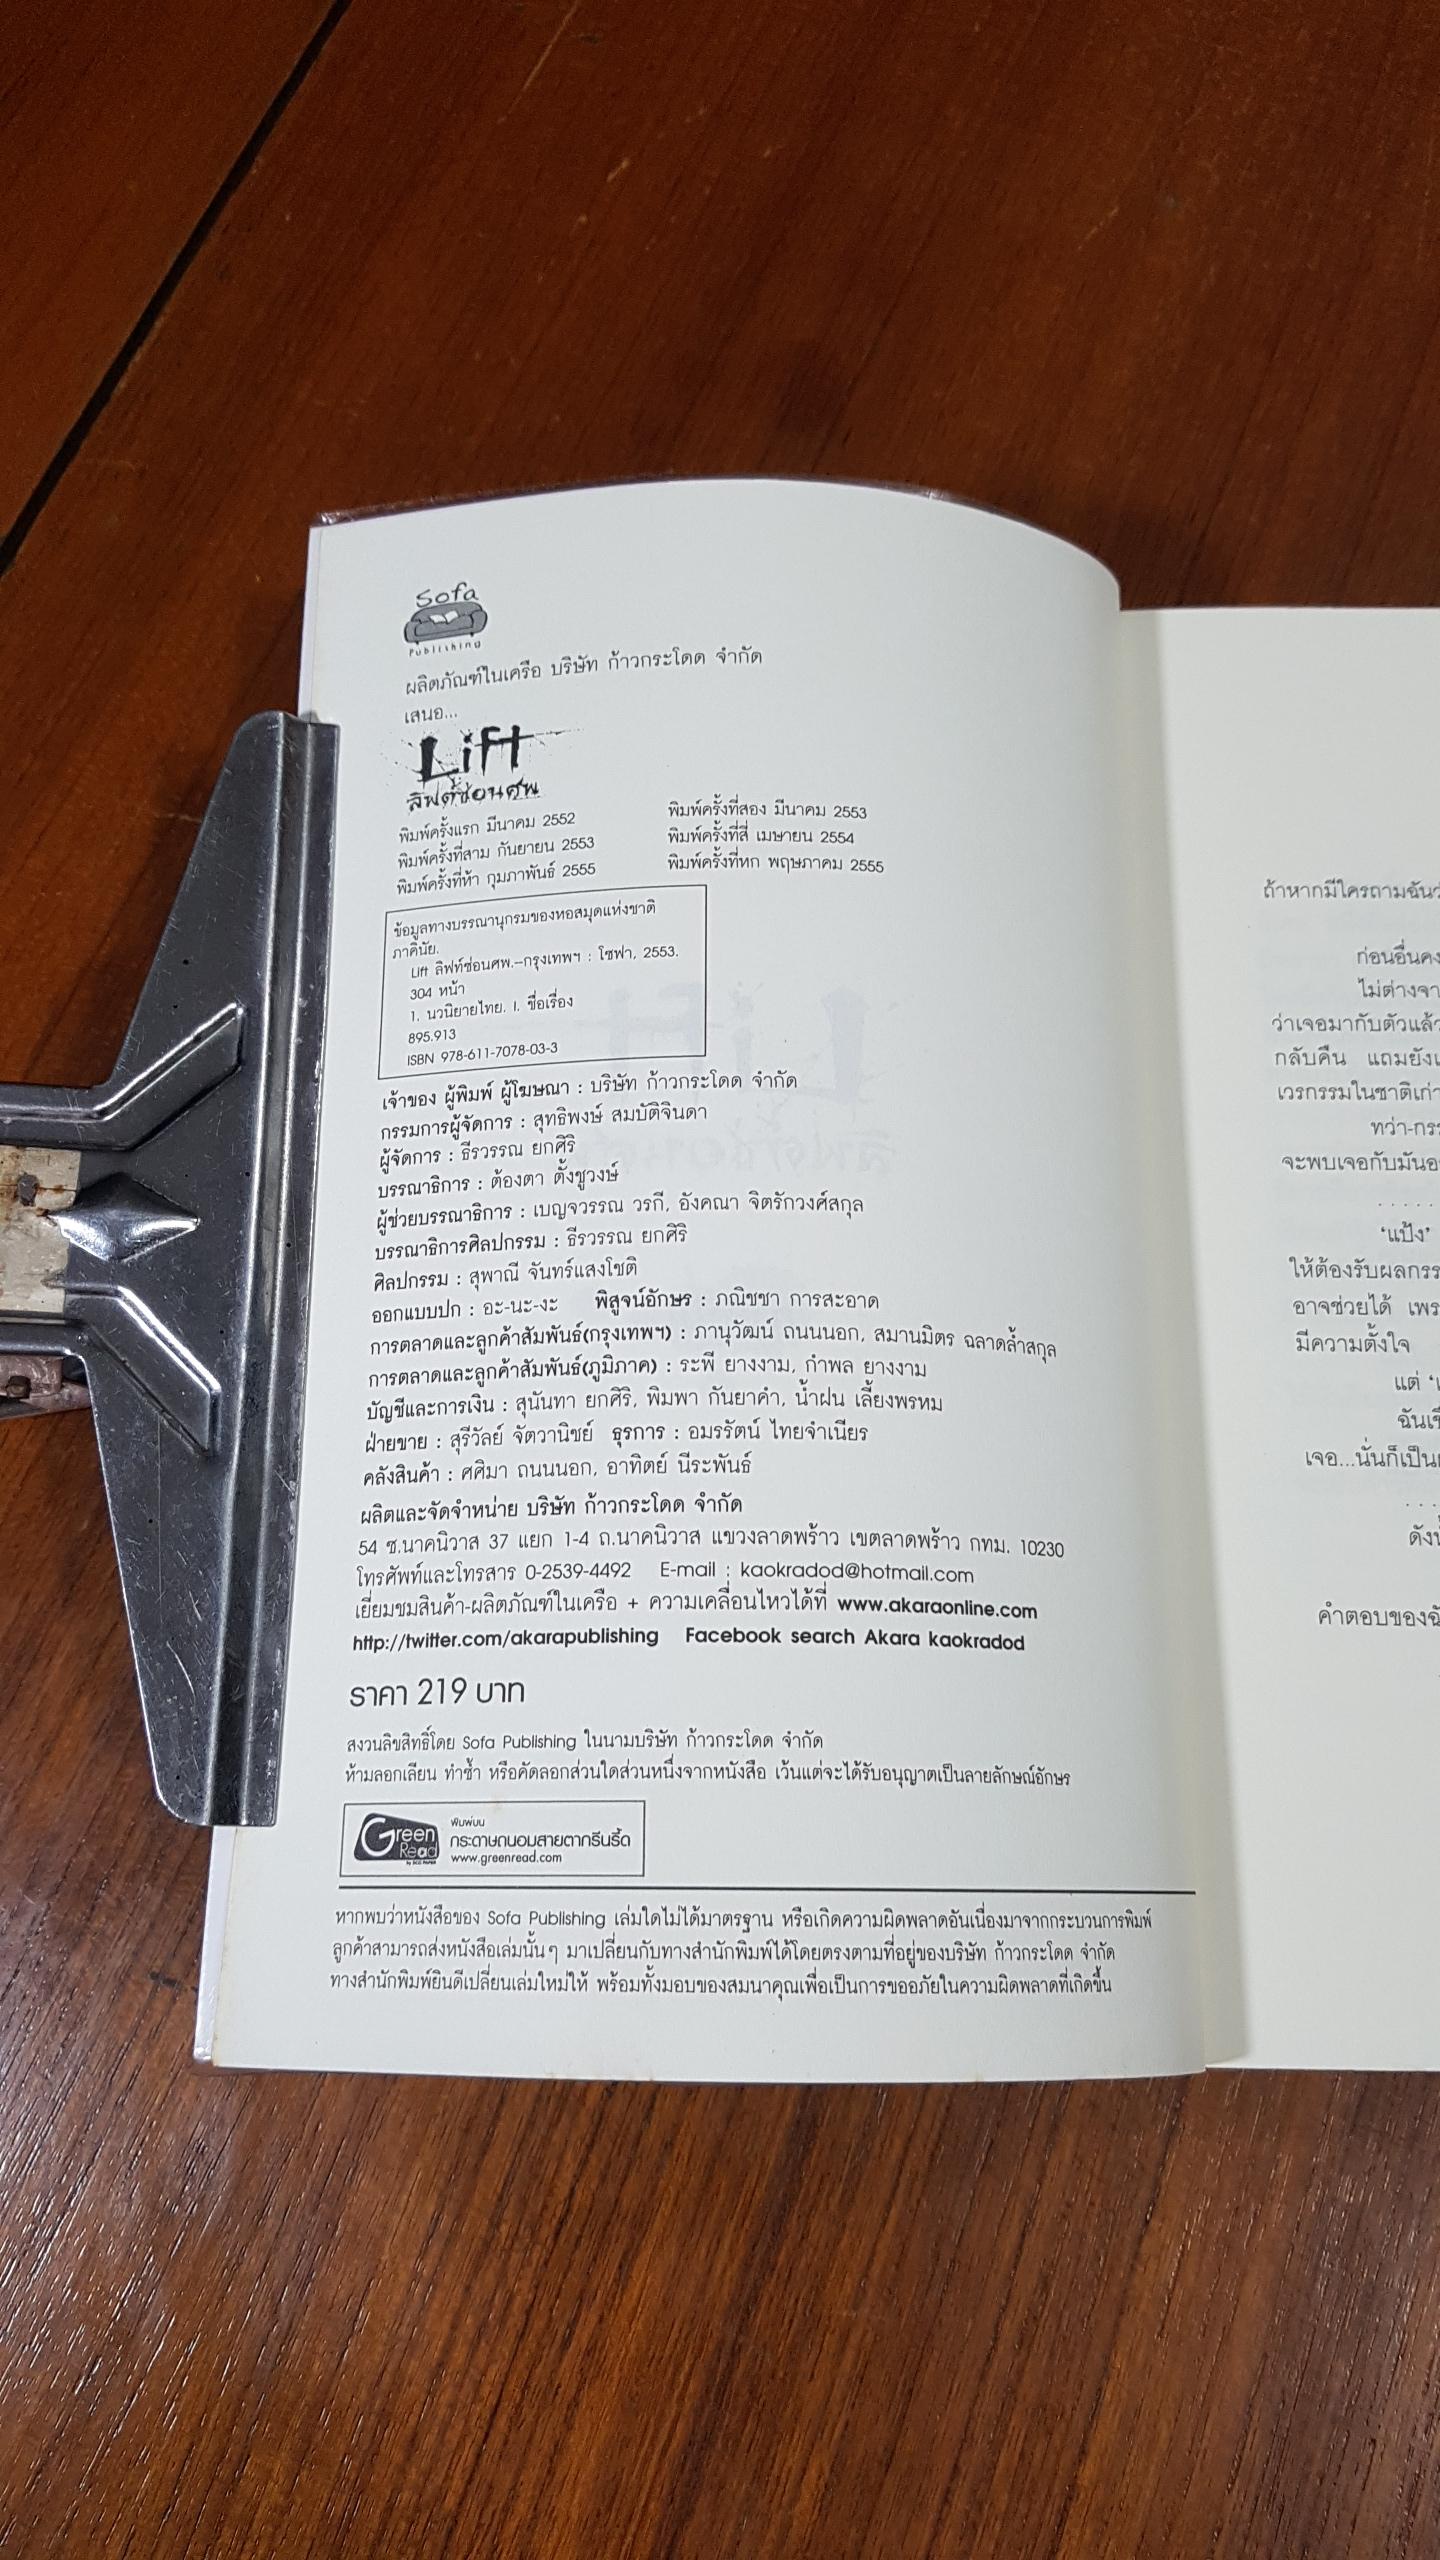 Sofa
Publishing
ผลิตภัณฑ์ในเครือ บริษัท ก้าวกระโดด จำกัด
เสนอ...
Lift
ลิฟต์ซ่อนศพ
พิมพ์ครั้งแรก มีนาคม 2552 พิมพ์ครั้งที่สอง มีนาคม 2553
พิมพ์ครั้งที่สาม กันยายน 2553 พิมพ์ครั้งที่สี่ เมษายน 2554
พิมพ์ครั้งที่ห้า กุมภาพันธ์ 2555 พิมพ์ครั้งที่หก พฤษภาคม 2555
ข้อมูลทางบรรณานุกรมของหอสมุดแห่งชาติ
ภาคินัย.
Lift ลิฟท์ซ่อนศพ.--กรุงเทพฯ : โซฟา, 2553.
304 หน้า
1. นวนิยายไทย. I. ชื่อเรื่อง
895.913
ISBN 978-611-7078-03-3
เจ้าของ ผู้พิมพ์ ผู้โฆษณา : บริษัท ก้าวกระโดด จำกัด
กรรมการผู้จัดการ : สุทธิพงษ์ สมบัติจินดา
ผู้จัดการ : ธีรวรรณ ยกศิริ
บรรณาธิการ : ต้องตา ตั้งชูวงษ์
ผู้ช่วยบรรณาธิการ : เบญจวรรณ วรกี, อังคณา จิตรักวงศ์สกุล
บรรณาธิการศิลปกรรม : ธีรวรรณ ยกศิริ
ศิลปกรรม : สุพาณี จันทร์แสงโชติ
ออกแบบปก : อะ-นะ-งะ พิสูจน์อักษร : ภณิชชา การสะอาด
การตลาดและลูกค้าสัมพันธ์(กรุงเทพฯ) : ภานุวัฒน์ ถนนนอก, สมานมิตร ฉลาดล้ำสกุล
การตลาดและลูกค้าสัมพันธ์(ภูมิภาค) : ระพี ยางงาม, กำพล ยางงาม
บัญชีและการเงิน : สุนันทา ยกศิริ, พิมพา กันยาคำ, น้ำฝน เลี้ยงพรหม
ฝ่ายขาย : สุรีวัลย์ จัตวานิชย์ ธุรการ : อมรรัตน์ ไทยจำเนียร
คลังสินค้า : ศศิมา ถนนนอก, อาทิตย์ นีระพันธ์
ผลิตและจัดจำหน่าย บริษัท ก้าวกระโดด จำกัด
54 ซ.นาคนิวาส 37 แยก 1-4 ถ.นาคนิวาส แขวงลาดพร้าว เขตลาดพร้าว กทม. 10230
โทรศัพท์และโทรสาร 0-2539-4492 E-mail : kaokradod@hotmail.com
เยี่ยมชมสินค้า-ผลิตภัณฑ์ในเครือ + ความเคลื่อนไหวได้ที่ www.akaraonline.com
http://twitter.com/akarapublishing Facebook search Akara kaokradod
ราคา 219 บาท
สงวนลิขสิทธิ์โดย Sofa Publishing ในนามบริษัท ก้าวกระโดด จำกัด
ห้ามลอกเลียน ทำซ้ำ หรือคัดลอกส่วนใดส่วนหนึ่งจากหนังสือ เว้นแต่จะได้รับอนุญาตเป็นลายลักษณ์อักษร
Green Read
by SCG PAPER
พิมพ์บน
กระดาษถนอมสายตากรีนรี้ด
www.greenread.com
หากพบว่าหนังสือของ Sofa Publishing เล่มใดไม่ได้มาตรฐาน หรือเกิดความผิดพลาดอันเนื่องมาจากกระบวนการพิมพ์
ลูกค้าสามารถส่งหนังสือเล่มนั้นๆ มาเปลี่ยนกับทางสำนักพิมพ์ได้โดยตรงตามที่อยู่ของบริษัท ก้าวกระโดด จำกัด
ทางสำนักพิมพ์ยินดีเปลี่ยนเล่มใหม่ให้ พร้อมทั้งมอบของสมนาคุณเพื่อเป็นการขออภัยในความผิดพลาดที่เกิดขึ้น
ถ้าหากมีใครถามฉัน
ก่อนอื่น
ไม่ต่าง
ว่าเจอมากับตัวแล้ว
กลับคืน แถมยัง
เวรกรรมในชาติเก่า
ทว่า
จะพบเจอกับมัน
. . . . .
'แป้ง'
ให้ต้องรับผล
อาจช่วยได้
มีความตั้งใจ
แต่
ฉัน
เจอ...นั่นก็เป็น
. . . .
คำตอบของ